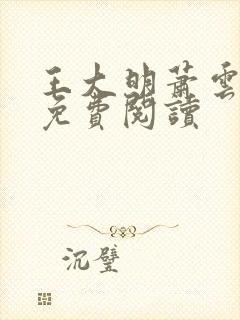 王大明蕭雲
免費閱讀
沉璧